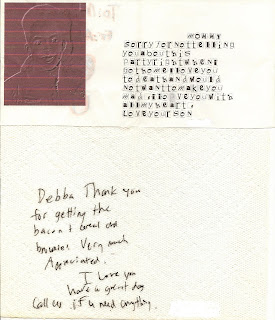 MOMMY
sorryfornottelling
youaboutthis
partyrightwhenI
gothomeIloveyou
todeathandwould
notwanttomakeyou
mad.Iloveyouwith
allmyheart.
Loveyourson
Debba Thank you
for getting the
bacon & bread and
brownies Very much
Appreciated.
I love you
have a great day
Call us if u need anything.